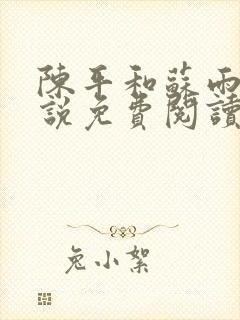 陳平和蘇雨
說免費閱讀
兔小絮